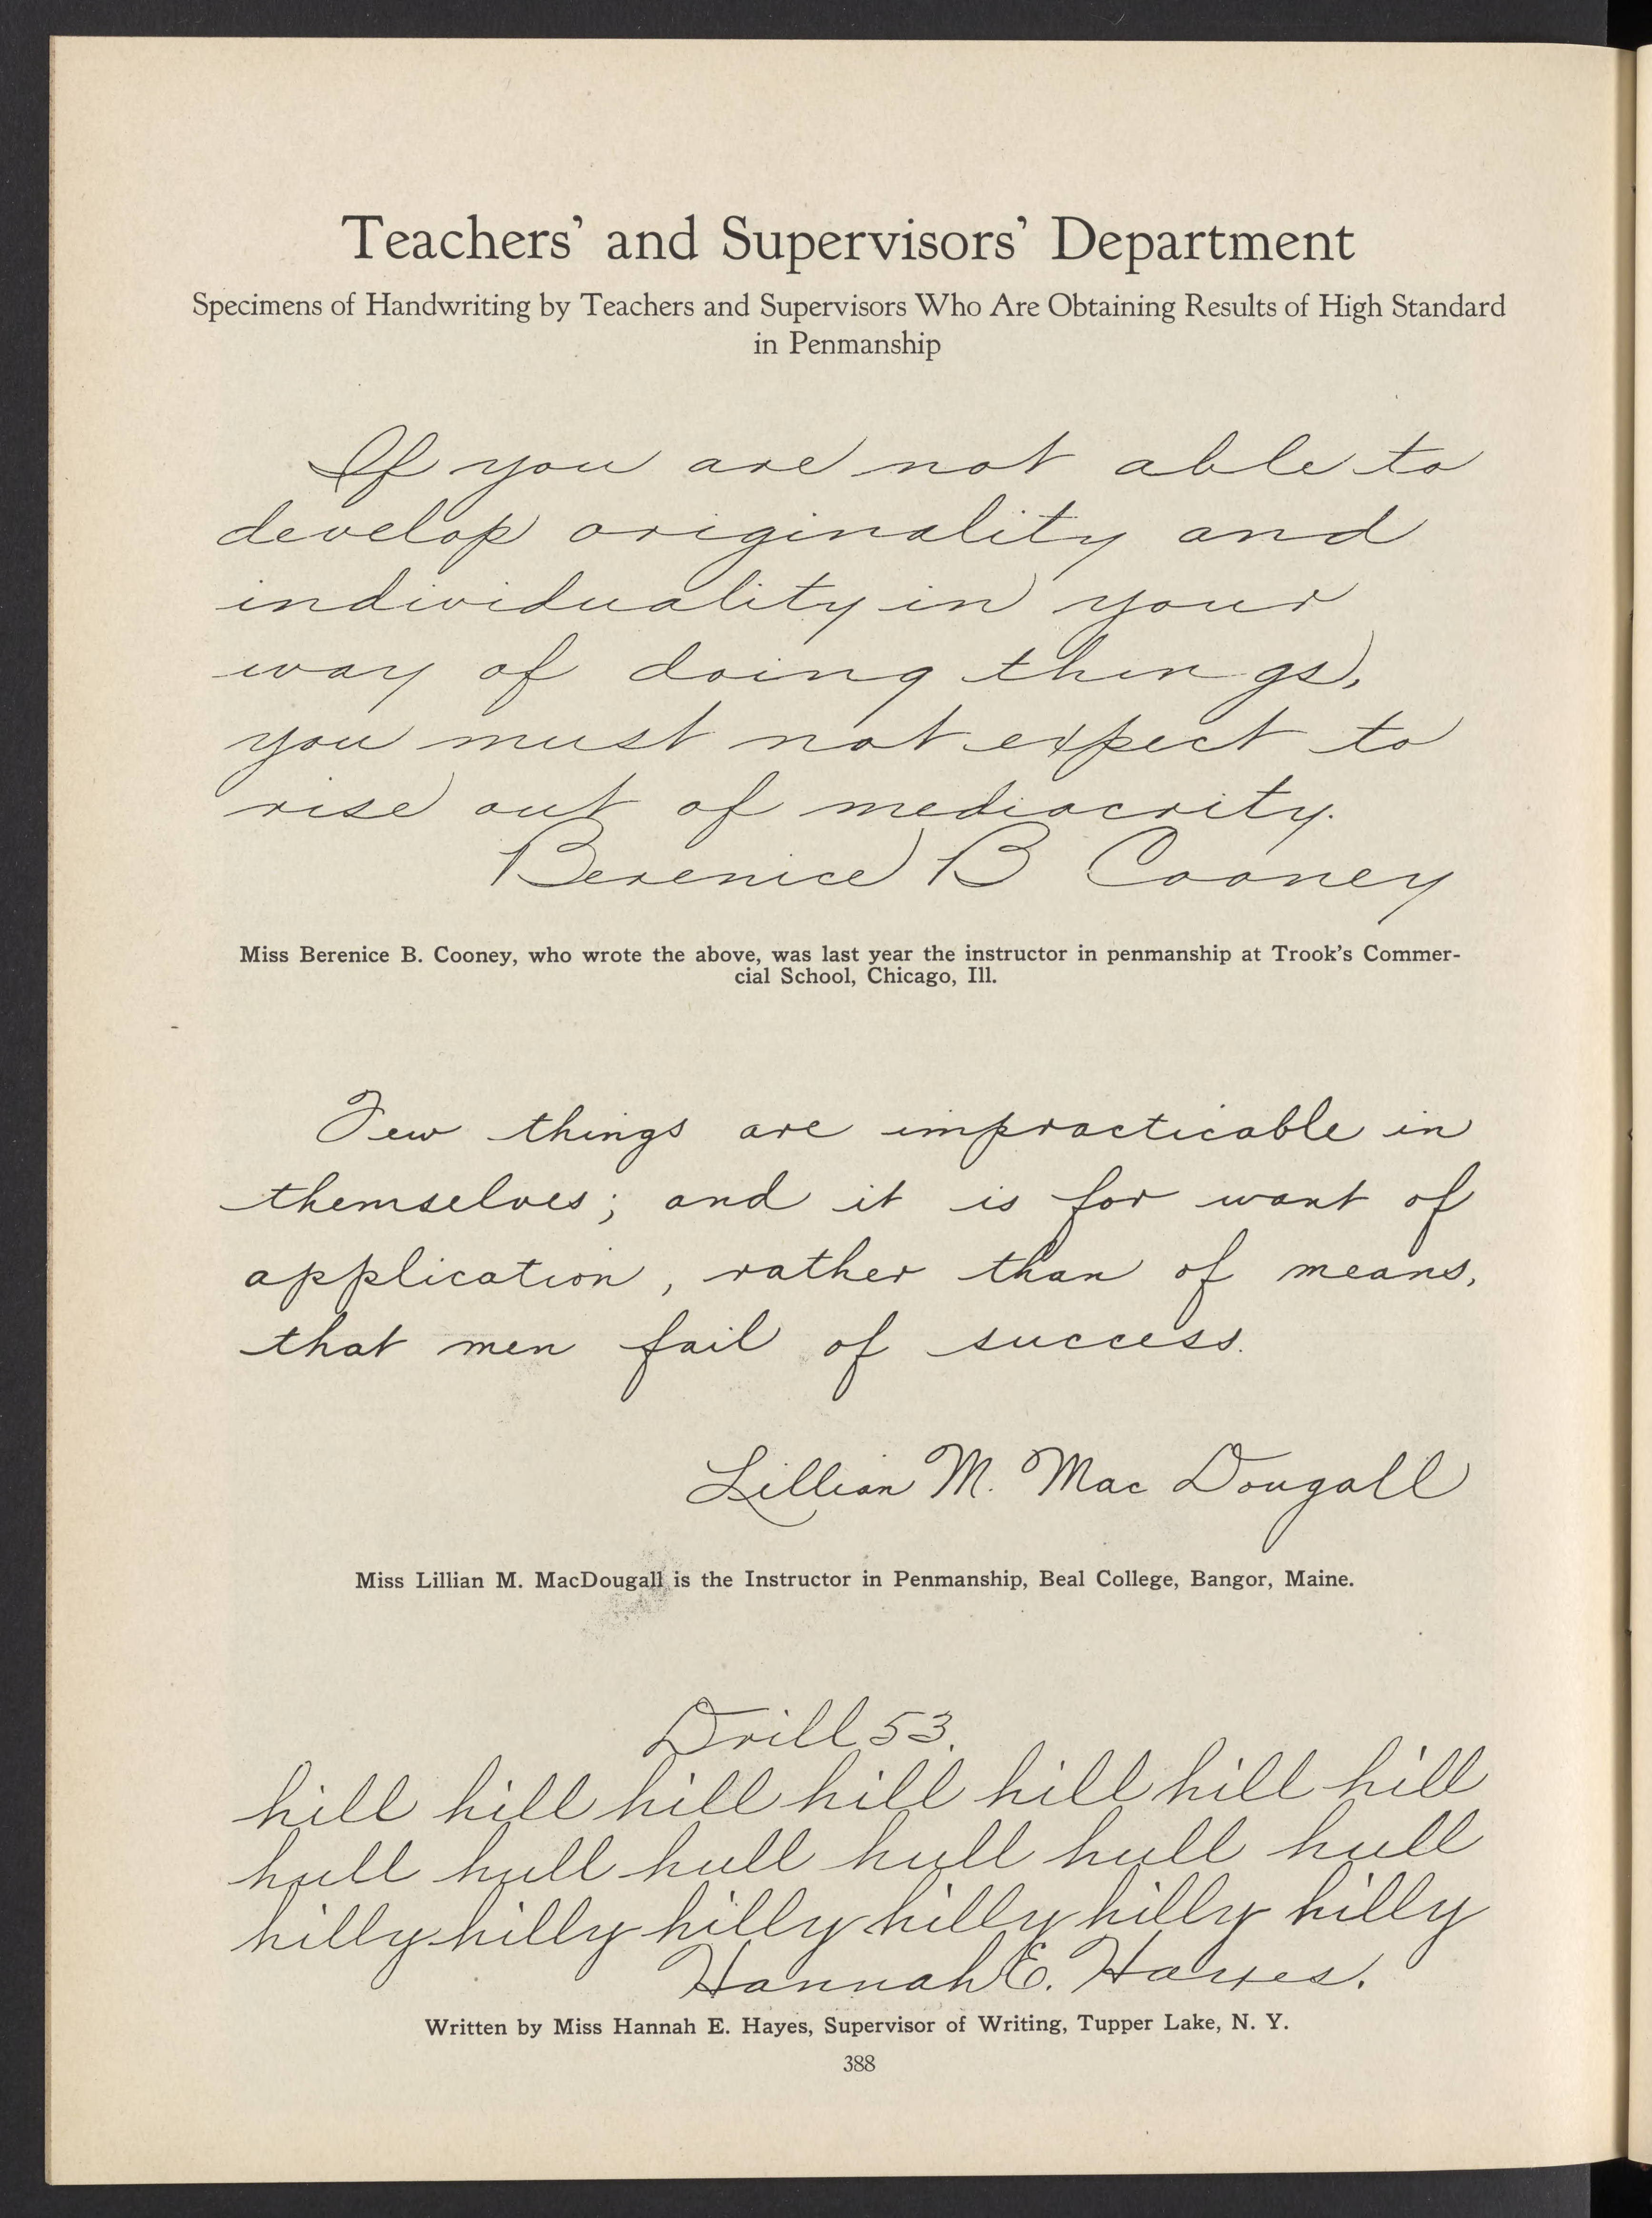 Teachers’ and Supervisors’ Department
Specimens of Handwriting by Teachers and Supervisors Who Are Obtaining Results of High Standard
in Penmanship
If you are not able to
develop originality and
individuality in your
way of doing things,
you must not expect to
rise out of mediocrity.
Berenice B Cooney
Miss Berenice B. Cooney, who wrote the above, was last year the instructor in penmanship at Trook’s Commer-
cial School, Chicago, Ill.
Few things are impracticable in
themselves; and it is for want of
application, rather than of means,
that men fail of success.
Lillian M. Mac Dougall
Miss Lillian M. MacDougall is the Instructor in Penmanship, Beal College, Bangor, Maine.
Drill 53.
hill hill hill hill hill hill hill
hull hull hull hull hull hull
hilly hilly hilly hilly hilly hilly
Hannah E. Hayes.
Written by Miss Hannah E. Hayes, Supervisor of Writing, Tupper Lake, N. Y.
388